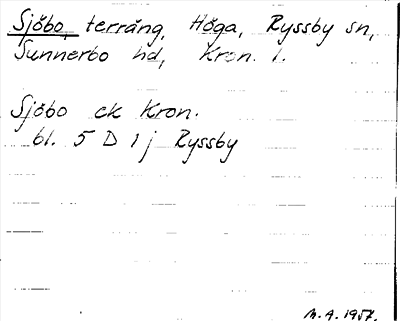 Sjöbo, terräng, Höga, Ryssby sn,
Sunnerbo hd, Kron. l.
Sjöbo ek Kron.
bl. 5 D 1 j Ryssby
M.A. 1957.